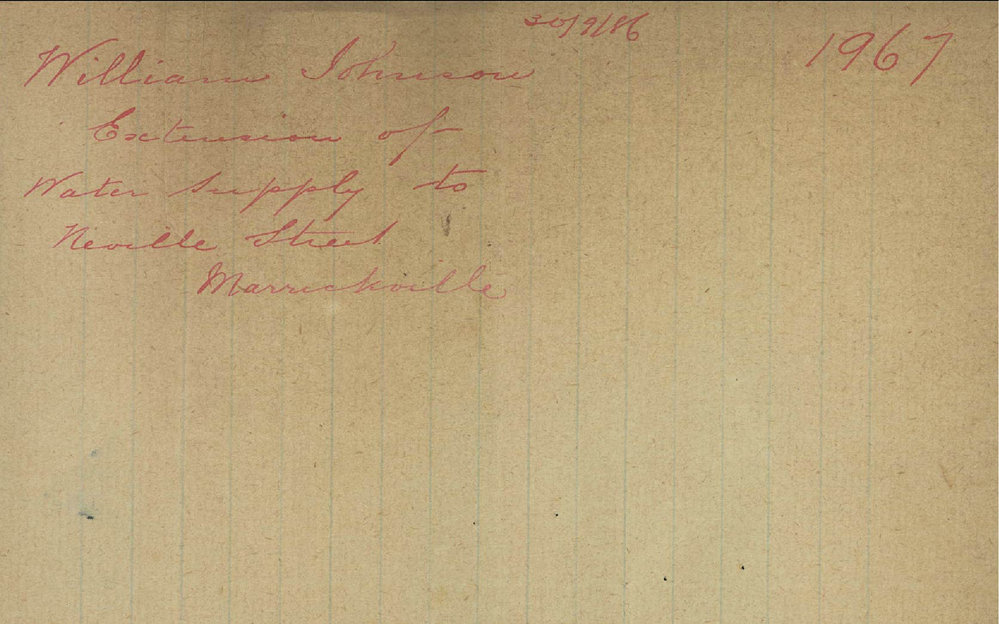 30/9/86
1967
William Johnson
Extension of
Water Supply to
Neville Street
Marrickville